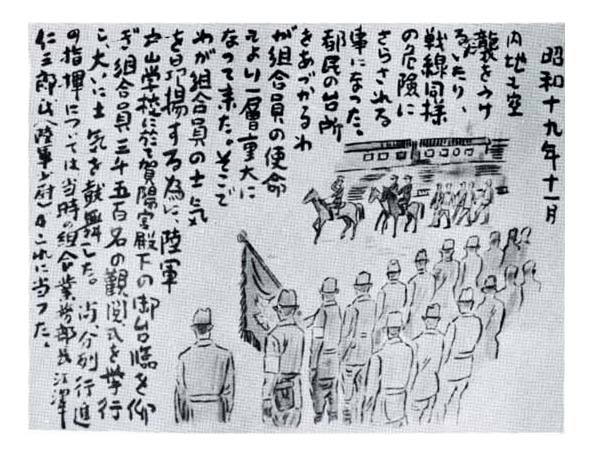 昭和十九年十一月
内地も空
襲をうけ
るにいたり、
戦線同様
の危険に
さらされる
事になった。
都民の台所
をあづかるわ
が組合員の使命
てより一層重大に
なって来た。そこで
わが組合員の士気
を昂揚する為に、陸軍
戸山学校に於て賀陽宮殿下の御台臨を仰
ぎ組合員三千五百名の観閲式を挙行
し、大いに士気を鼓舞した。尚、分列行進
の指揮については当時の組合業務部長江澤
仁三郎氏(陸軍少尉)がこれに当つた。